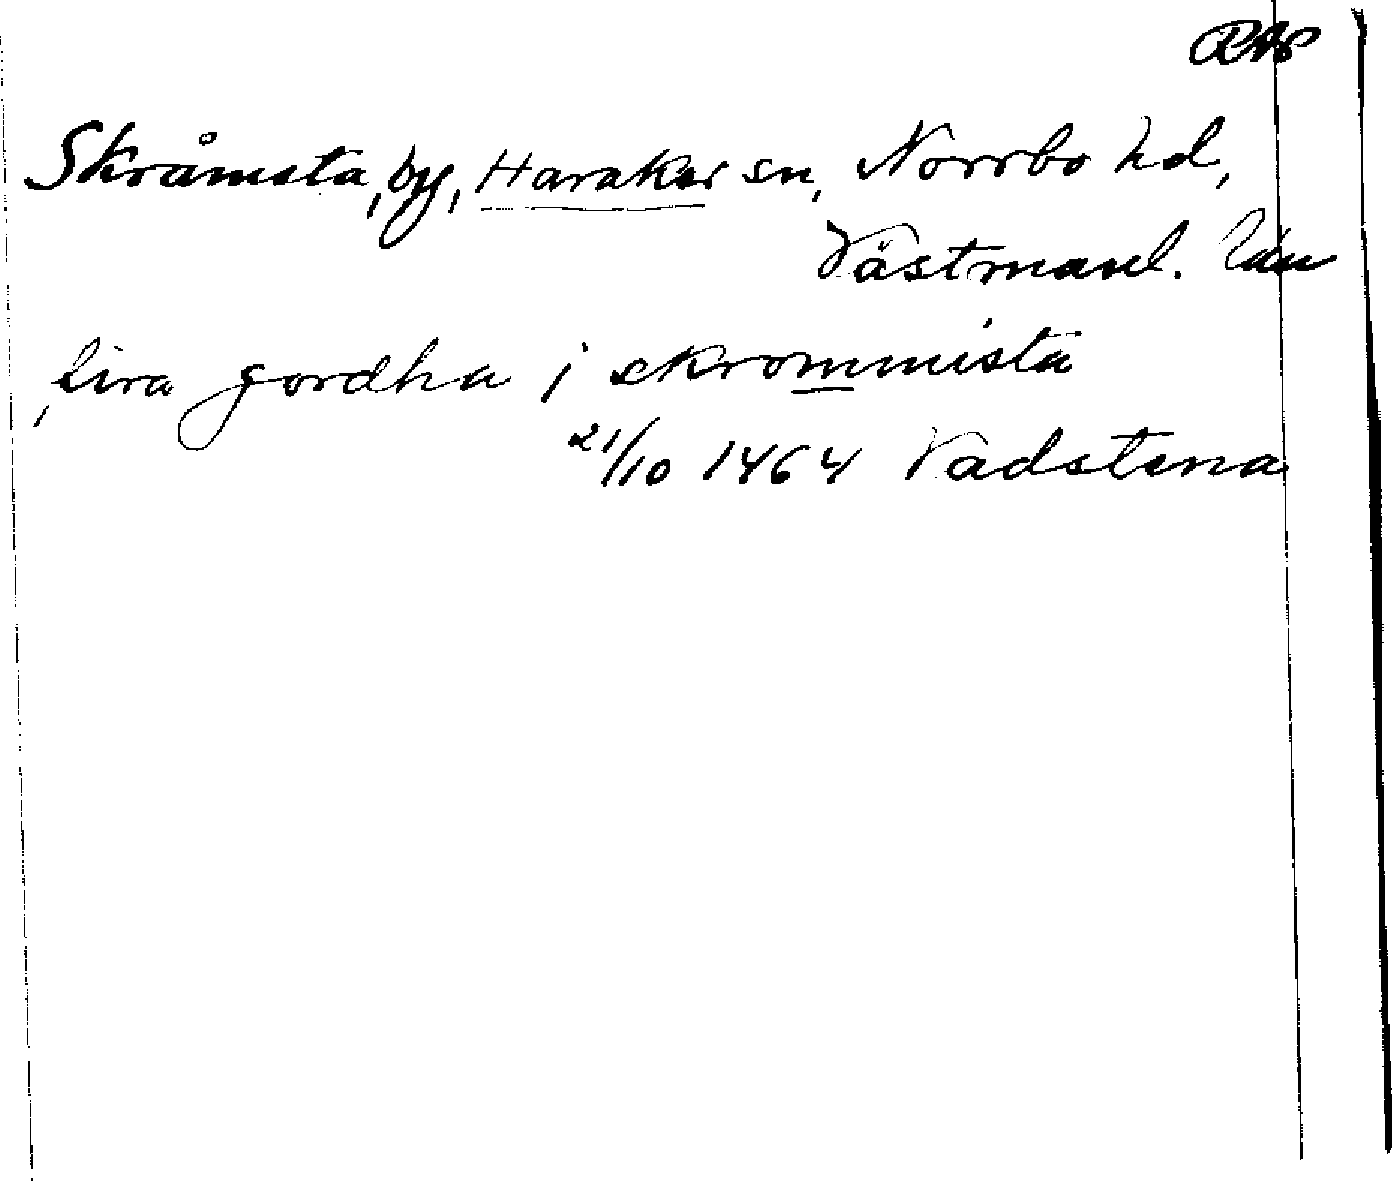 RAp
Skråmsta, by, Haraker sn, Norrbo hd,
Västmanl. län
fira gordha i skrommista
21/10 1464 Vadstena